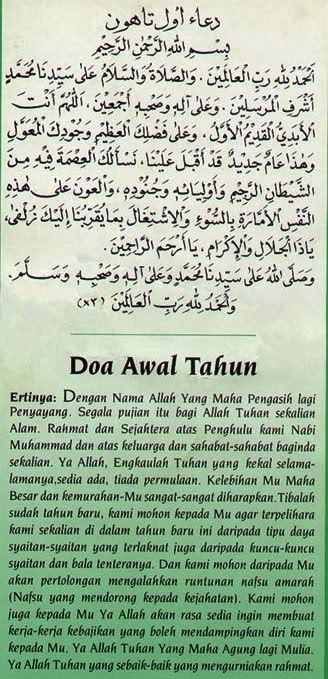 دعاء اول تاهون
بِسْمِ اللهِ الرَّحْمٰنِ الرَّحِيْمِ
اَلْحَمْدُ لِلّٰهِ رَبِّ الْعَالَمِيْنَ . وَالصَّلَاةُ وَالسَّلَامُ عَلَى سَيِّدِنَا مُحَمَّدٍ
أَشْرَفِ الْمُرْسَلِيْنَ . وَعَلَى آلِهِ وَصَحْبِهِ أَجْمَعِيْنَ . اَللّٰهُمَّ أَنْتَ
الْأَبَدِيُّ الْقَدِيْمُ الْأَوَّلُ . وَعَلَى فَضْلِكَ الْعَظِيْمِ وَجُوْدِكَ الْمُعَوَّلِ
وَهٰذَا عَامٌ جَدِيْدٌ قَدْ أَقْبَلَ عَلَيْنَا . نَسْأَلُكَ الْعِصْمَةَ فِيْهِ مِنَ
الشَّيْطَانِ الرَّجِيْمِ وَأَوْلِيَائِهِ وَجُنُوْدِهِ . وَالْعَوْنَ عَلَى هٰذِهِ
النَّفْسِ الْأَمَّارَةِ بِالسُّوْءِ وَالْاِشْتِغَالِ بِمَا يُقَرِّبُنَا إِلَيْكَ زُلْفَى .
يَا ذَا الْجَلَالِ وَالْإِكْرَامِ . يَا أَرْحَمَ الرَّاحِمِيْنَ .
وَصَلَّى اللهُ عَلَى سَيِّدِنَا مُحَمَّدٍ وَعَلَى آلِهِ وَصَحْبِهِ وَسَلَّمَ .
وَالْحَمْدُ لِلّٰهِ رَبِّ الْعَالَمِيْنَ (x٣)
Doa Awal Tahun
Ertinya: Dengan Nama Allah Yang Maha Pengasih lagi
Penyayang. Segala pujian itu bagi Allah Tuhan sekalian
Alam. Rahmat dan Sejahtera atas Penghulu kami Nabi
Muhammad dan atas keluarga dan sahabat-sahabat baginda
sekalian. Ya Allah, Engkaulah Tuhan yang kekal selama-
lamanya,sedia ada, tiada permulaan. Kelebihan Mu Maha
Besar dan kemurahan-Mu sangat-sangat diharapkan.Tibalah
sudah tahun baru, kami mohon kepada Mu agar terpelihara
kami sekalian di dalam tahun baru ini daripada tipu daya
syaitan-syaitan yang terlaknat juga daripada kuncu-kuncu
syaitan dan bala tenteranya. Dan kami mohon daripada Mu
akan pertolongan mengalahkan runtunan nafsu amarah
(Nafsu yang mendorong kepada kejahatan). Kami mohon
juga kepada Mu Ya Allah akan rasa sedia ingin membuat
kerja-kerja kebajikan yang boleh mendampingkan diri kami
kepada Mu. Ya Allah Tuhan Yang Maha Agung lagi Mulia.
Ya Allah Tuhan yang sebaik-baik yang mengurniakan rahmat.